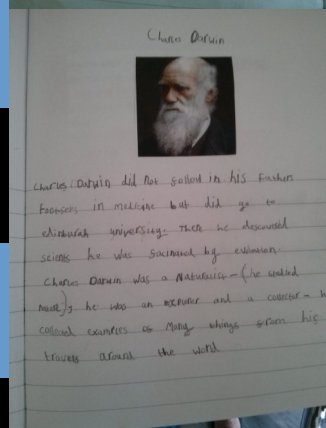 Charles Darwin
Charles Darwin did not follow in his fathers
footsteps in medicine but did go to
edinburah university. Then he descoverd
scients he was facinated by evolution.
Charles Darwin was a Naturalist - (he studied
nature), he was an explorer and a collector - he
collected examples of many things from his
travels around the world